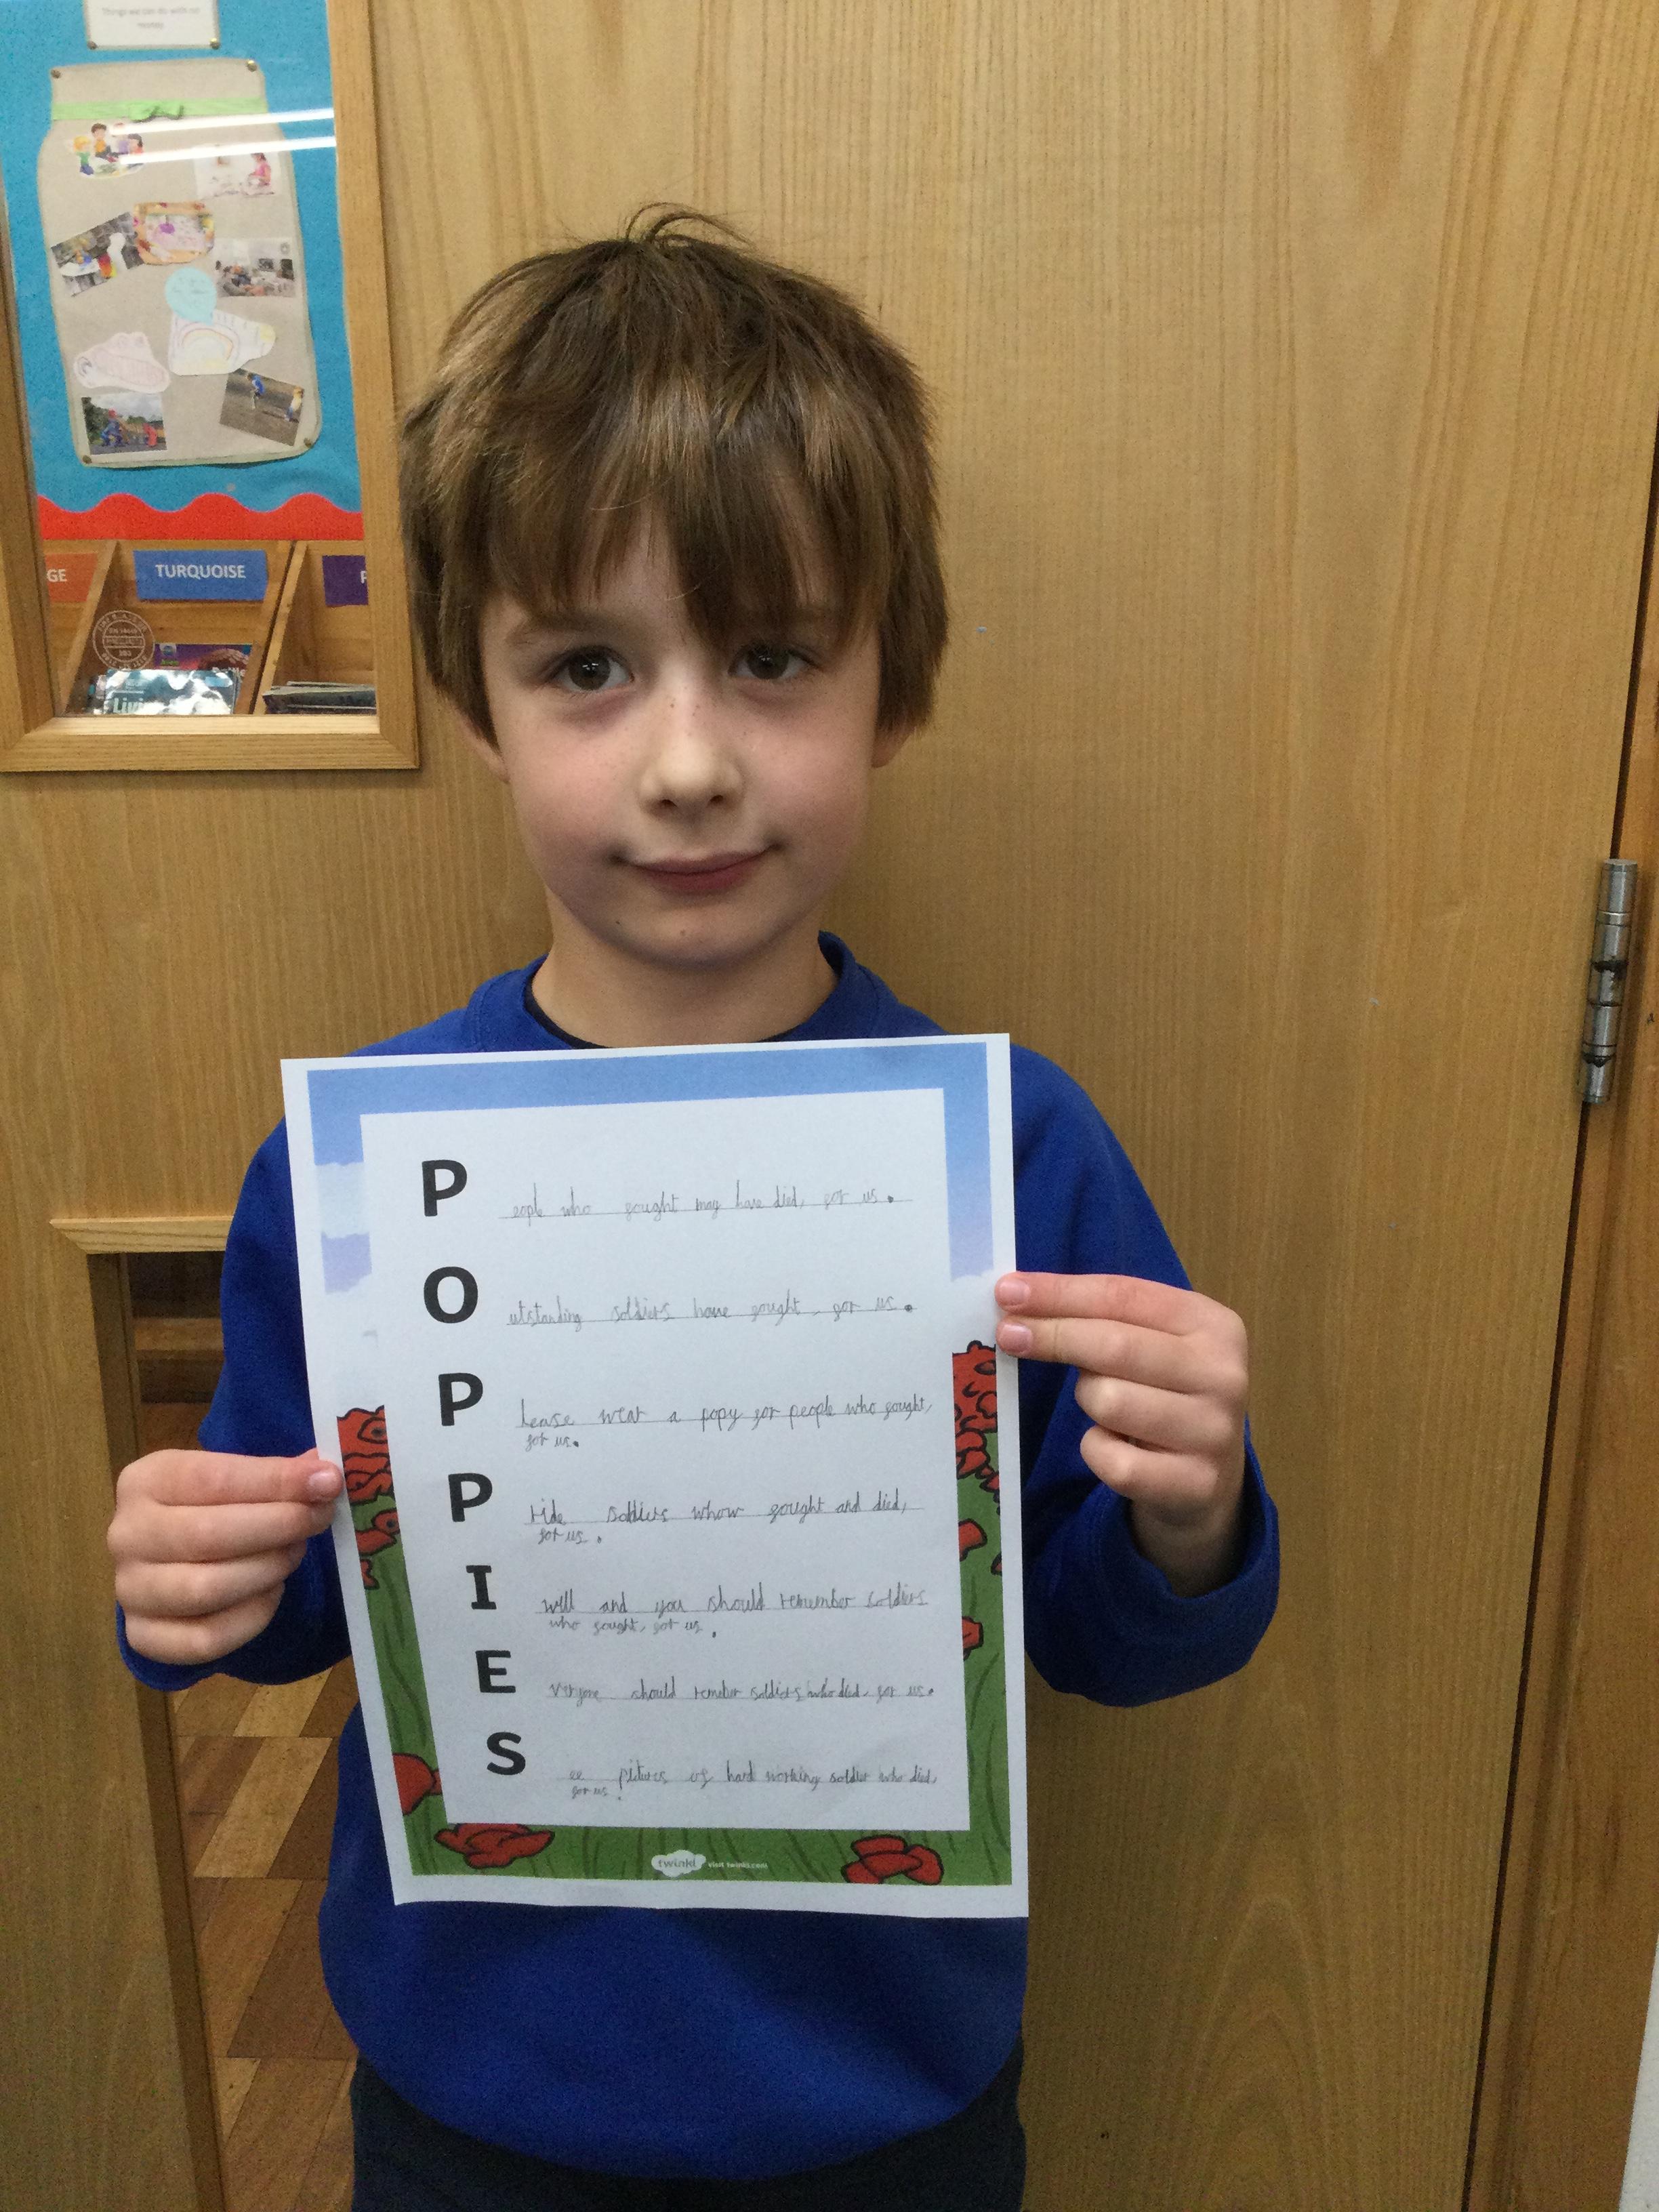 Things we can do with our
money
GE
TURQUOISE
P
People who fought may have died, for us.
Outstanding soldiers have fought, for us.
Please wear a popy for people who fought,
for us.
Pride soldiers whow fought and died,
for us.
I will and you should remember soldiers
who fought, for us.
Everyone should remeber soldiers who died, for us.
See pictures of hard working soldier who died,
for us.
twinkl visit twinkl.com